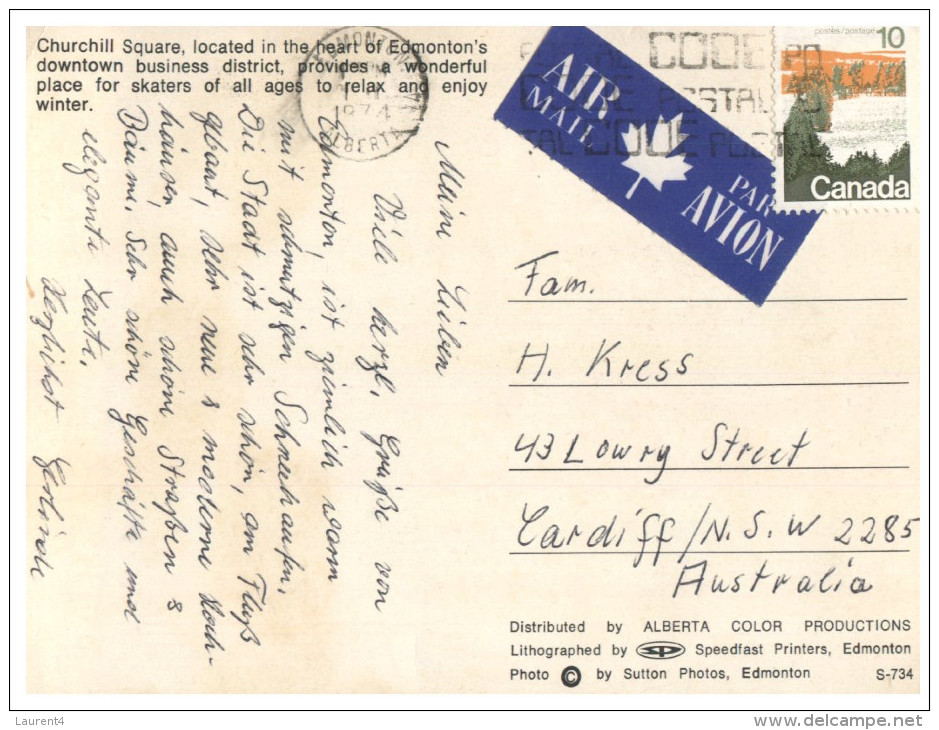 Churchill Square, located in the heart of Edmonton's
downtown business district, provides a wonderful
place for skaters of all ages to relax and enjoy
winter.
EDMONTON
1974
ALBERTA
CODE
POSTAL
CODE POSTAL
AIR
MAIL
PAR
AVION
postes/postage 10
Canada
Meine Lieben
Viele herzl. Grüße von
Edmonton, ist ziemlich warm
mit schmutzigen Schneehaufen.
Die Stadt ist sehr schön, am Fluß
gebaut, sehr neue & moderne Hoch-
häuser, auch schöne Straßen &
Bäume. Sehr schöne Geschäfte und
elegante Leute.
Herzlichst Gerlinde
Fam.
H. Kress
43 Lowry Street
Cardiff/N.S.W 2285
Australia
Distributed by ALBERTA COLOR PRODUCTIONS
Lithographed by SP Speedfast Printers, Edmonton
Photo © by Sutton Photos, Edmonton S-734
Laurent4
www.delcampe.net